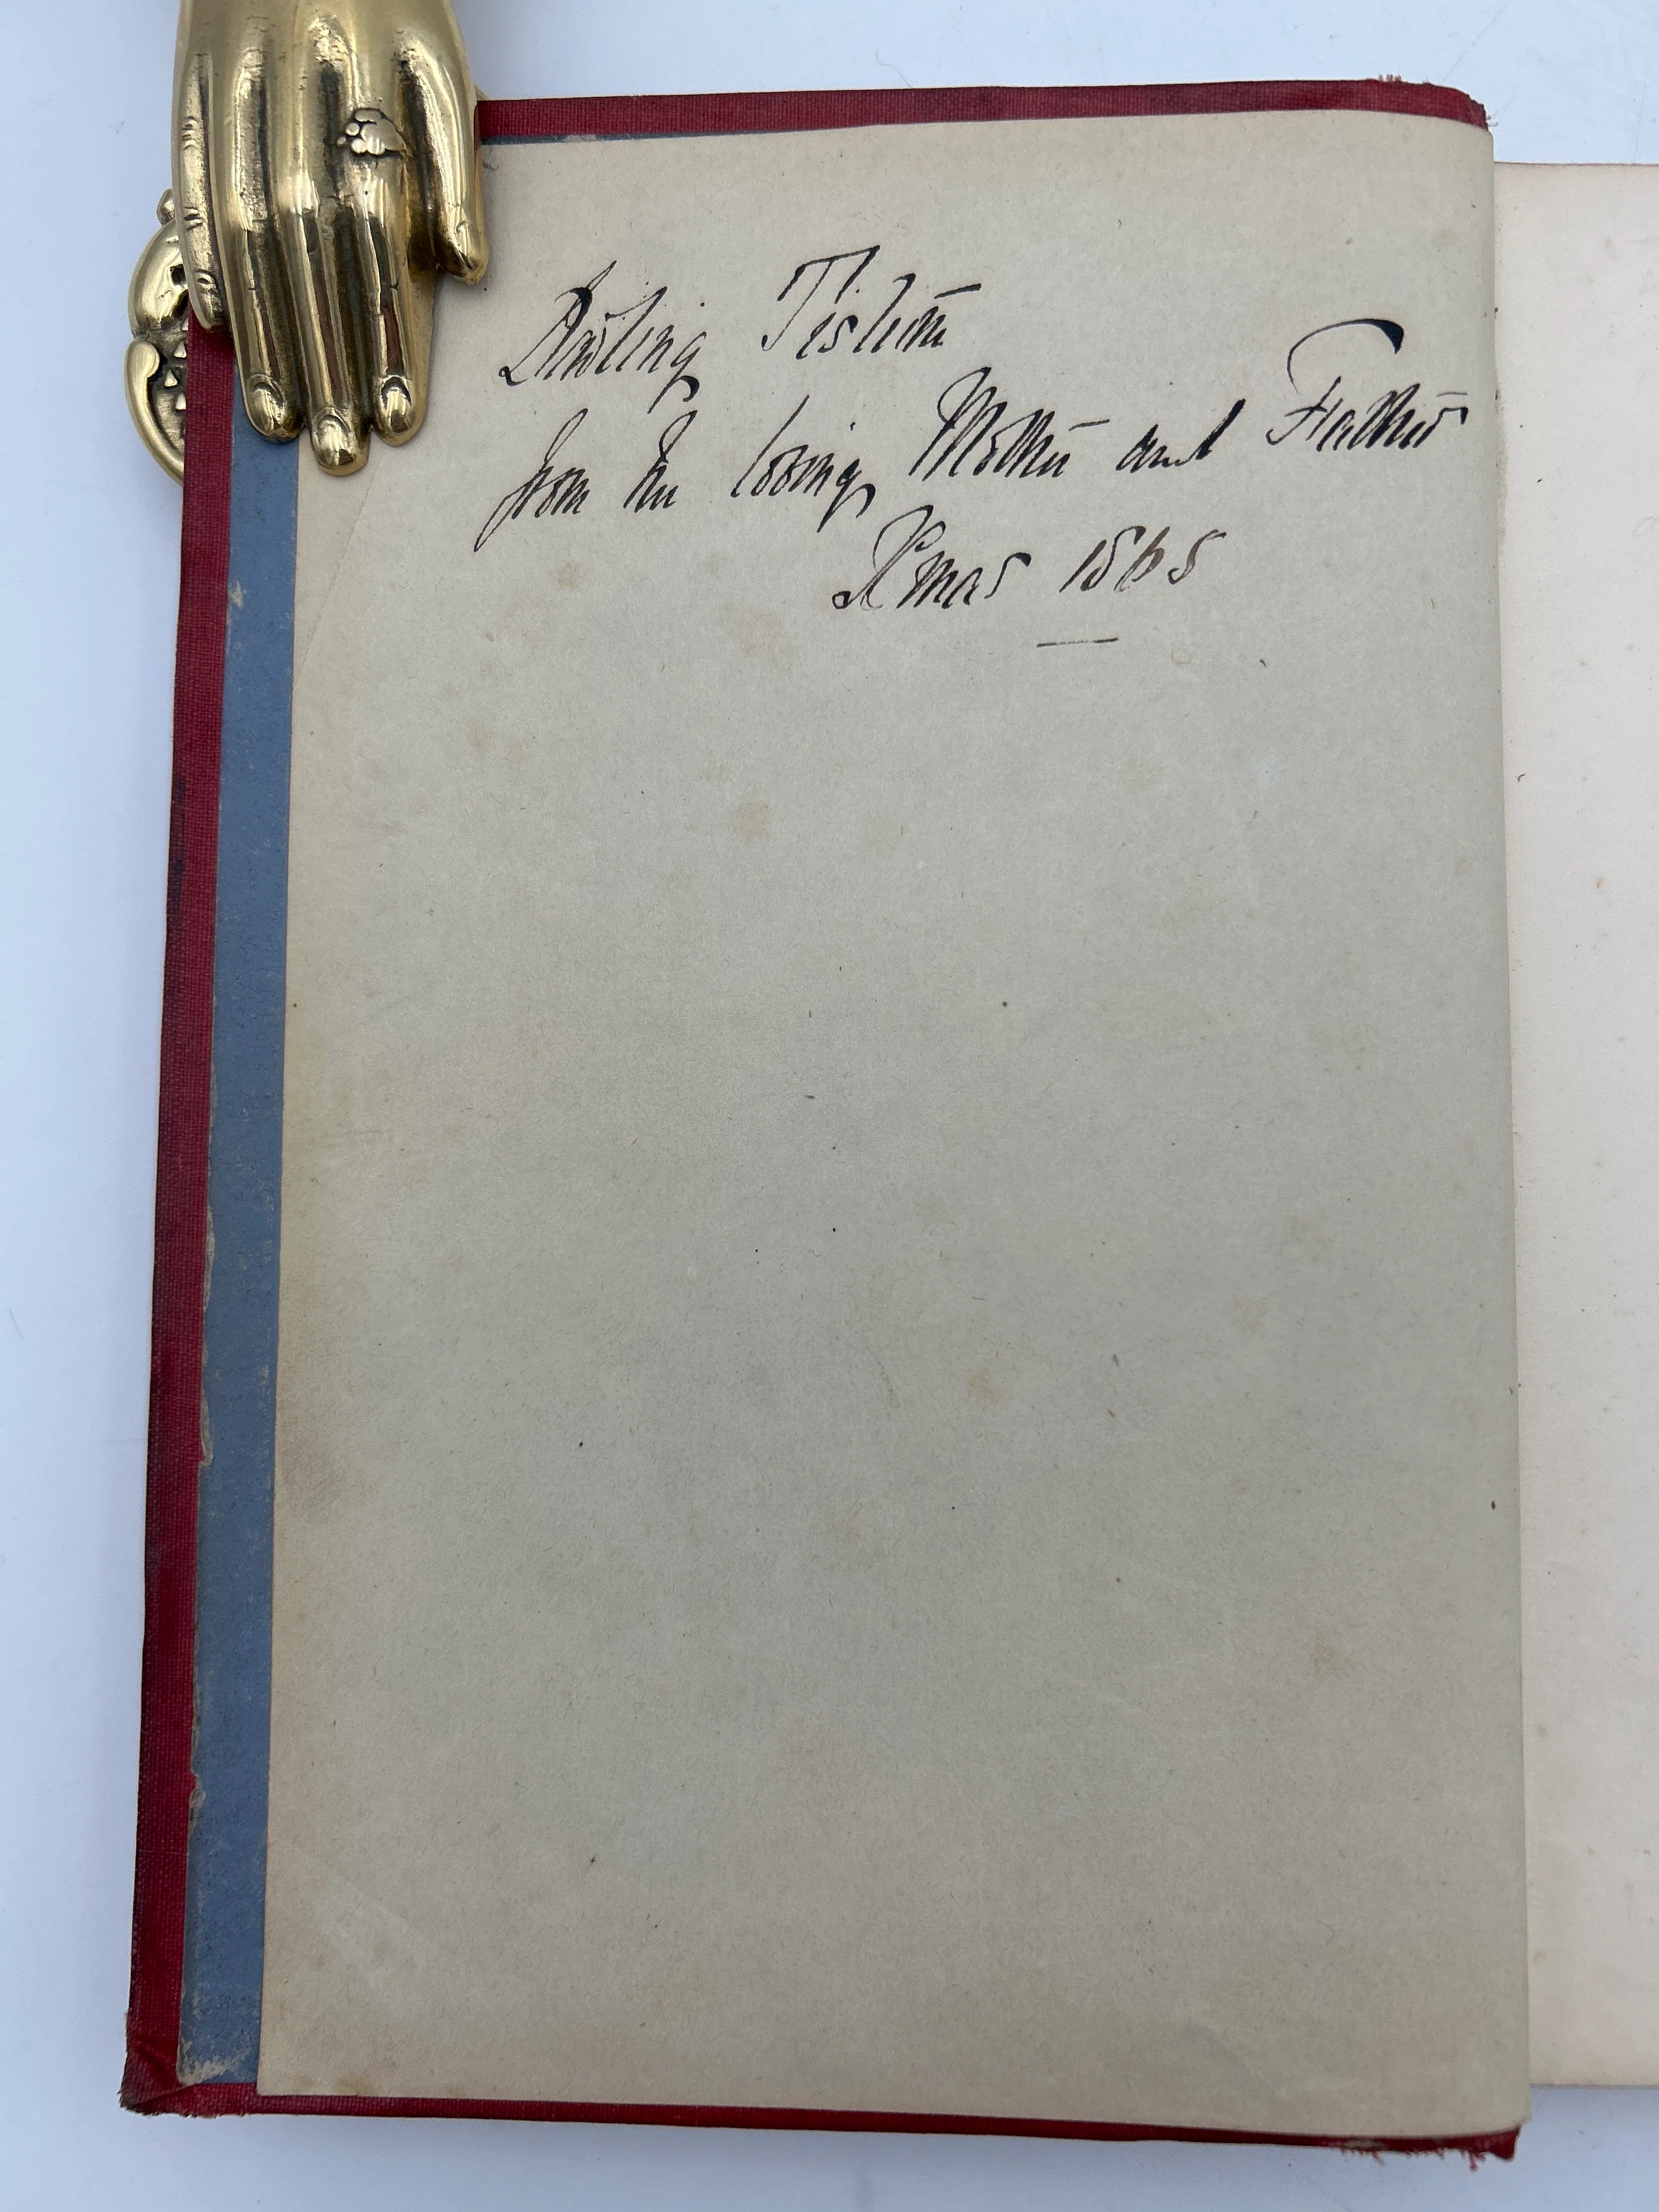 Darling
from her loving Mother and Father
Xmas